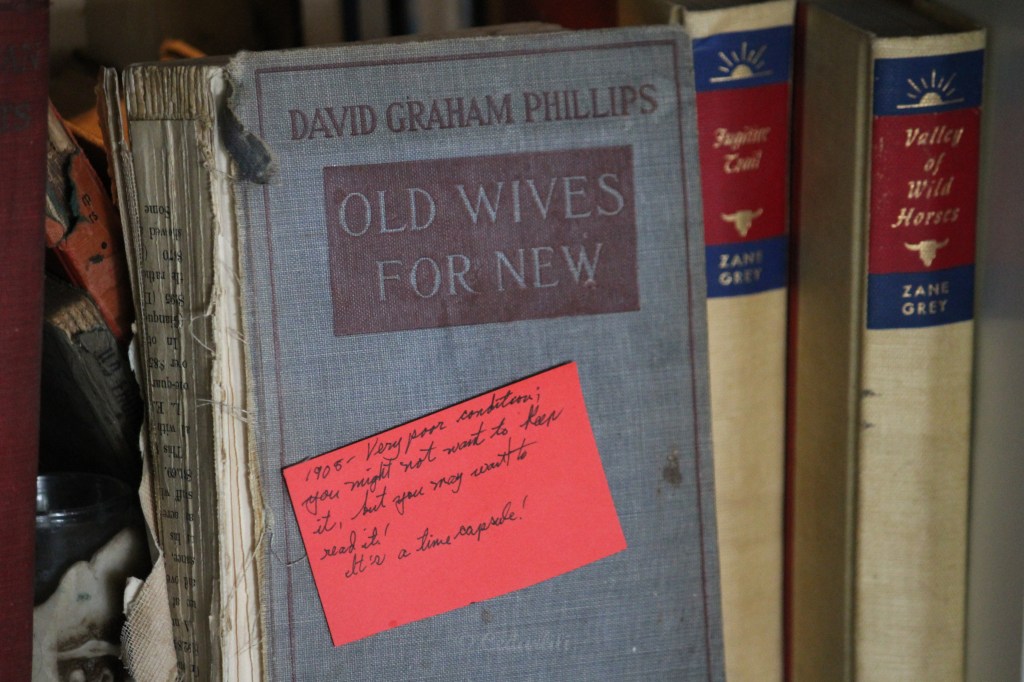 DAVID GRAHAM PHILLIPS
OLD WIVES
FOR NEW
1908- Very poor condition;
you might not want to keep
it, but you may want to
read it!
It's a time capsule!
Fugitive
Trail
ZANE
GREY
Valley
of
Wild
Horses
ZANE
GREY